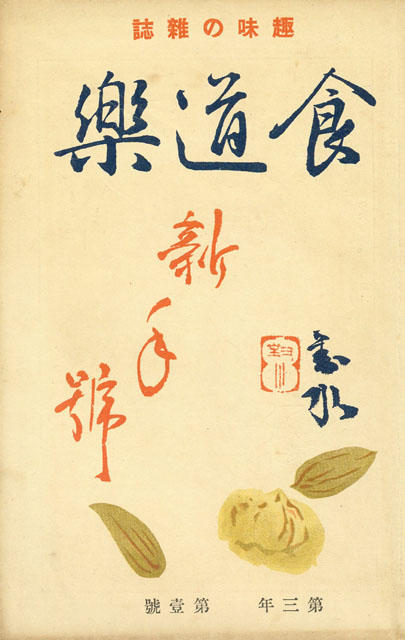 趣味の雜誌
食道樂
新年號
第三年 第壹號